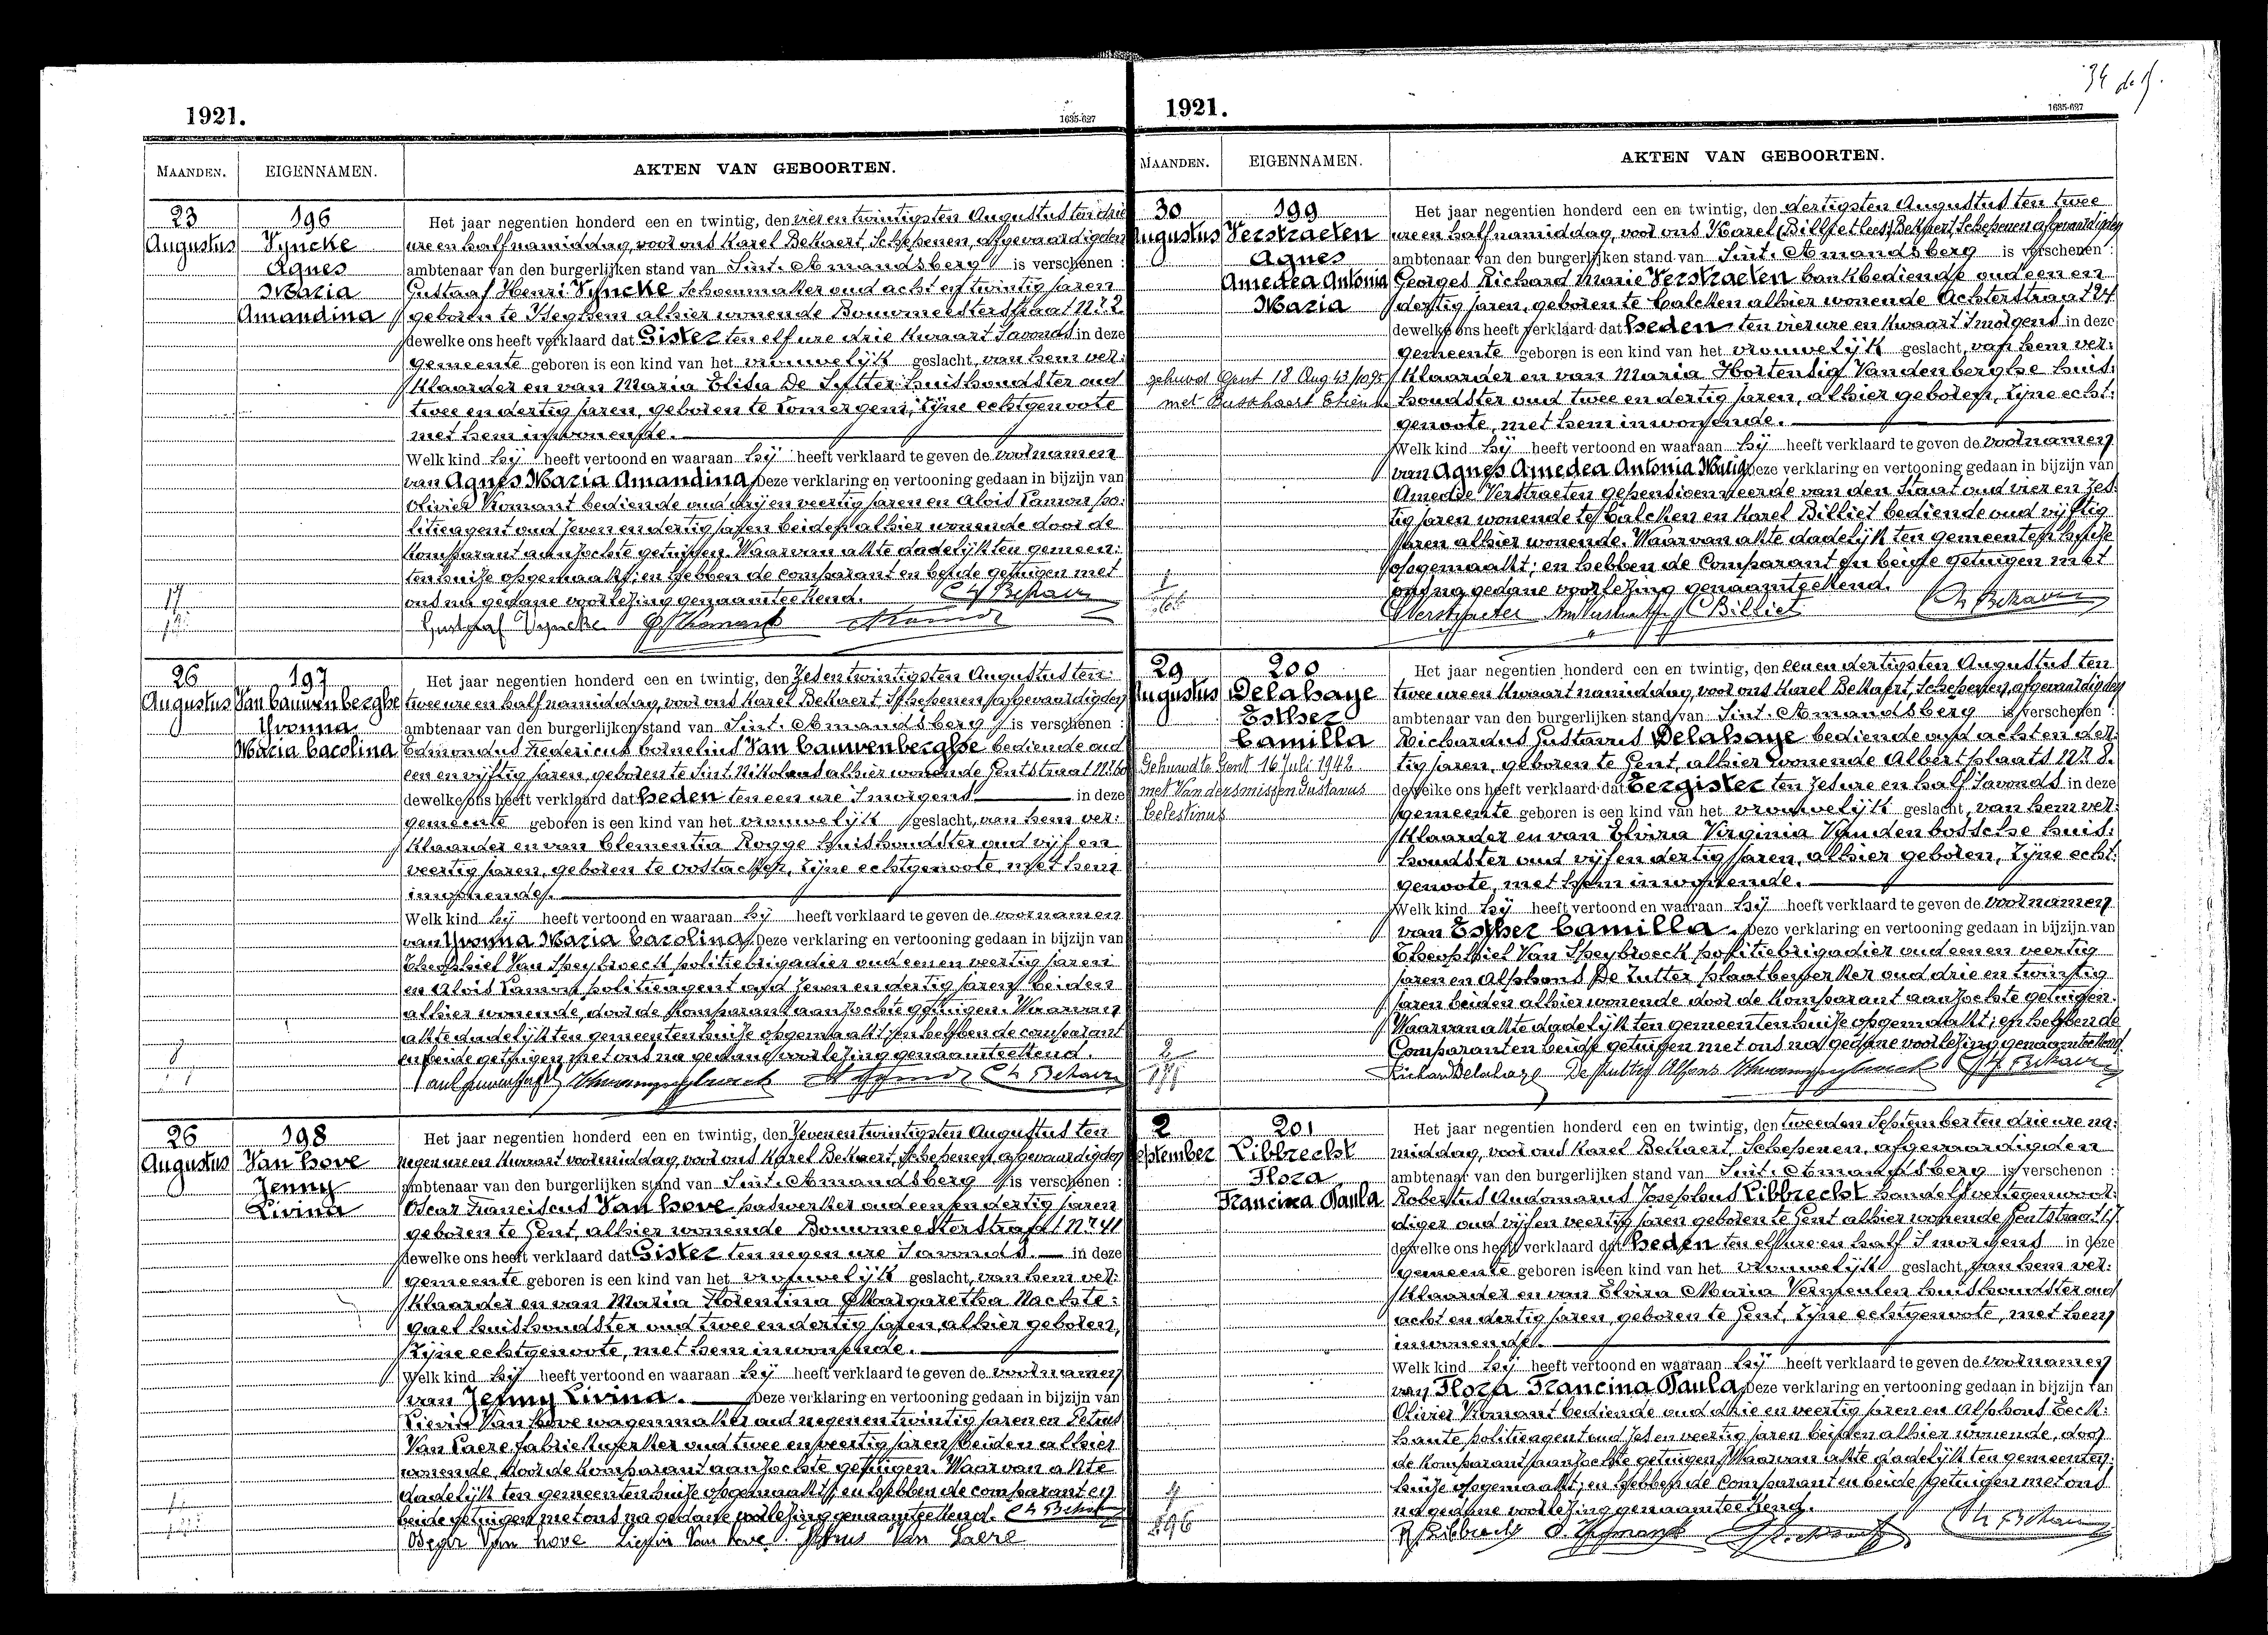 1921.
1635-627
MAANDEN.
EIGENNAMEN.
AKTEN VAN GEBOORTEN.
23
Augustus
196
Vyncke
Agnes
Maria
Amandina
Het jaar negentien honderd een en twintig, den vier en twintigsten Augustus ten drie
ure en half namiddag, voor ons Karel Bekaert, Schepenen, afgevaardigden
ambtenaar van den burgerlijken stand van Sint-Amandsberg is verschenen :
Gustaaf Henri Vyncke schoenmaker oud acht en twintig jaren
geboren te Iseghem alhier wonende Bouwmeestersstraat Nr 2
dewelke ons heeft verklaard dat Gister ten elf ure drie kwaart 's avonds in deze
gemeente geboren is een kind van het vrouwelijk geslacht, van hem ver:
klaarder en van Maria Elisa De Sutter huishoudster oud
twee en dertig jaren, geboren te Somergem, zijne echtgenoote
met hem inwonende.
Welk kind hij heeft vertoond en waaraan hij heeft verklaard te geven de voornamen
van Agnes Maria Amandina Deze verklaring en vertooning gedaan in bijzijn van
Olivier Komant bediende oud drij en veertig jaren en Alois Lamon po:
litieagent oud zeven en dertig jaren beiden alhier wonende door de
komparant aanzochte getuigen. Waarvan akte dadelijk ten gemeen:
tenhuise opgemaakt; en hebben de comparant en beide getuigen met
ons na gedane voorlezing genaamteekend.
17
Gustaaf Vyncke
26
Augustus
197
Van Cauwenberghe
Yvonna
Maria Carolina
Het jaar negentien honderd een en twintig, den Zes en twintigsten Augustus ten
twee ure en half namiddag, voor ons Karel Bekaert, Schepenen, afgevaardigden
ambtenaar van den burgerlijken stand van Sint-Amandsberg is verschenen :
Edmondus Fredericus Cornelius Van Cauwenberghe bediende oud
een en vijftig jaren, geboren te Sint Nikolaas alhier wonende Gentstraat
dewelke ons heeft verklaard dat heden ten een ure 's morgens in deze
gemeente geboren is een kind van het vrouwelijk geslacht, van hem ver:
klaarder en van Clementia Rogge huishoudster oud vijf en
veertig jaren, geboren te Oostacker, zijne echtgenoote, met hem
inwonende.
Welk kind hij heeft vertoond en waaraan hij heeft verklaard te geven de voornamen
van Yvonna Maria Carolina Deze verklaring en vertooning gedaan in bijzijn van
Theophiel Van Speybroeck politiebrigadier oud een en veertig jaren
en Alois Lamon politieagent oud zeven en dertig jaren beiden
alhier wonende, door de komparant aanzochte getuigen. Waarvan
akte dadelijk ten gemeentenhuise opgemaakt; en hebben de comparant
en beide getuigen met ons na gedane voorlezing genaamteekend.
8
26
Augustus
198
Van hove
Jenny
Livina
Het jaar negentien honderd een en twintig, den Zeven en twintigsten Augustus ten
negen ure en kwaart voormiddag, voor ons Karel Bekaert, Schepenen, afgevaardigden
ambtenaar van den burgerlijken stand van Sint-Amandsberg is verschenen :
Oscar Franciscus Van hove paswerker oud een en dertig jaren
geboren te Gent, alhier wonende Bouwmeesterstraat Nr 41
dewelke ons heeft verklaard dat Gister ten negen ure 's avonds. in deze
gemeente geboren is een kind van het vrouwelijk geslacht, van hem ver:
klaarder en van Maria Florentina Margaretha Nachte:
gael huishoudster oud twee en dertig jaren, alhier geboren,
zijne echtgenoote, met hem inwonende.
Welk kind hij heeft vertoond en waaraan hij heeft verklaard te geven de voornamen
van Jenny Livina. Deze verklaring en vertooning gedaan in bijzijn van
Lievin Van hove wagenmaker oud negen en twintig jaren en Petrus
Van Laere fabriekwerker oud twee en veertig jaren beiden alhier
wonende, door de komparant aanzochte getuigen. Waarvan akte
dadelijk ten gemeentenhuise opgemaakt; en hebben de comparant en
beide getuigen met ons na gedane voorlezing genaamteekend.
Van hove Lievin Van hove Petrus Van Laere
1921.
1635-627
MAANDEN.
EIGENNAMEN.
AKTEN VAN GEBOORTEN.
30
Augustus
199
Verstraeten
Agnes
Amedea Antonia
Maria
gehuwd Gent 18 Aug 43
met Busschaert Etienne
Het jaar negentien honderd een en twintig, den dertigsten Augustus ten twee
ure en half namiddag, voor ons Karel (Billiet lees) Bekaert, Schepenen afgevaardigden
ambtenaar van den burgerlijken stand van Sint-Amandsberg is verschenen :
Georges Richard Marie Verstraeten bankbediende oud een en
dertig jaren, geboren te Calcken alhier wonende Achterstraat 24
dewelke ons heeft verklaard dat heden ten vier ure en kwaart 's morgens in deze
gemeente geboren is een kind van het vrouwelijk geslacht, van hem ver:
klaarder en van Maria Hortentia Vandenberghe huis:
houdster oud twee en dertig jaren, alhier geboren, zijne echt:
genoote, met hem inwonende.
Welk kind hij heeft vertoond en waaraan hij heeft verklaard te geven de voornamen
van Agnes Amedea Antonia Maria Deze verklaring en vertooning gedaan in bijzijn van
Amedée Verstraeten gepensioenneerde van den Staat oud vier en zes:
tig jaren wonende te Calcken en Karel Billiet bediende oud vijftig
jaren alhier wonende. Waarvan akte dadelijk ten gemeentenhuise
opgemaakt; en hebben de Comparant en beide getuigen met
ons na gedane voorlezing genaamteekend.
C Billiet
29
Augustus
200
Delahaye
Esther
Camilla
Gehuwd te Gent 16 Juli 1942
met Van der smissen Gustavus
Celestinus
Het jaar negentien honderd een en twintig, den een en dertigsten Augustus ten
twee ure en kwaart namiddag, voor ons Karel Bekaert, Schepenen, afgevaardigden
ambtenaar van den burgerlijken stand van Sint-Amandsberg is verschenen :
Richardus Gustavus Delahaye bediende oud acht en der:
tig jaren, geboren te Gent, alhier wonende Albertplaats Nr 8.
dewelke ons heeft verklaard dat Eergister ten zes ure en half 's avonds in deze
gemeente geboren is een kind van het vrouwelijk geslacht, van hem ver:
klaarder en van Elvira Virginia Vandenbossche huis:
houdster oud vijf en dertig jaren, alhier geboren, zijne echt:
genoote, met hem inwonende.
Welk kind hij heeft vertoond en waaraan hij heeft verklaard te geven de voornamen
van Esther Camilla. Deze verklaring en vertooning gedaan in bijzijn van
Theophiel Van Speybroeck politiebrigadier oud een en veertig
jaren en Alphons De Zutter plaatbewerker oud drie en twintig
jaren beiden alhier wonende door de komparant aanzochte getuigen.
Waarvan akte dadelijk ten gemeentenhuise opgemaakt; en hebben de
Comparant en beide getuigen met ons na gedane voorlezing genaamteekend.
2
Richard Delahaye
2
September
201
Libbrecht
Flora
Francina Paula
Het jaar negentien honderd een en twintig, den tweeden September ten drie ure na:
middag, voor ons Karel Bekaert, Schepenen, afgevaardigden
ambtenaar van den burgerlijken stand van Sint-Amandsberg is verschenen :
Robertus Audomarus Josephus Libbrecht handelsvertegenwoor:
diger oud vijf en veertig jaren geboren te Gent alhier wonende Gentstraat 17
dewelke ons heeft verklaard dat heden ten elf ure en half 's morgens in deze
gemeente geboren is een kind van het vrouwelijk geslacht, van hem ver:
klaarder en van Elvira Maria Vermeulen huishoudster oud
acht en dertig jaren, geboren te Gent, zijne echtgenoote, met hem
inwonende.
Welk kind hij heeft vertoond en waaraan hij heeft verklaard te geven de voornamen
van Flora Francina Paula Deze verklaring en vertooning gedaan in bijzijn van
Olivier Komant bediende oud drie en veertig jaren en Alphons Eeck:
haute politieagent oud zes en veertig jaren beiden alhier wonende, door
de komparant aanzochte getuigen. Waarvan akte dadelijk ten gemeenten:
huise opgemaakt; en hebben de Comparant en beide getuigen met ons
na gedane voorlezing genaamteekend.
196